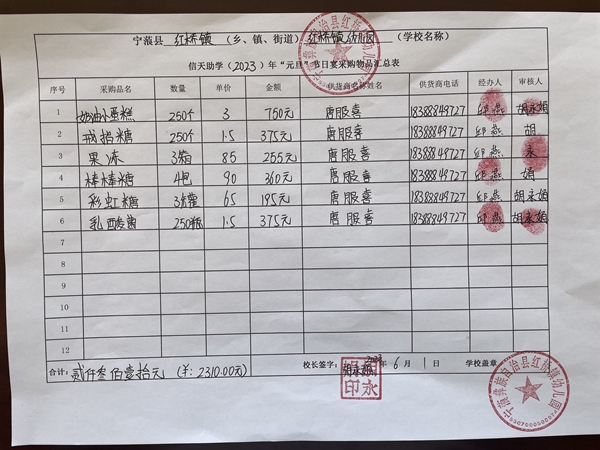 宁蒗县 红桥镇 (乡、镇、街道) 红桥镇幼儿园 (学校名称)
信天助学(2023)年“元旦”节日宴采购物品汇总表
序号 采购品名 数量 单价 金额 供货商名称姓名 供货商电话 经办人 审核人
1 奶油小蛋糕 250个 3 750元 唐服喜 18388849727 邱燕 胡永娟
2 戒指糖 250个 1.5 375元 唐服喜 18388849727 邱燕 胡
3 果冻 3箱 85 255元 唐服喜 18388849727 邱燕 永
4 棒棒糖 4包 90 360元 唐服喜 18388849727 邱燕 娟
5 彩虹糖 3罐 65 195元 唐服喜 18388849727 邱燕 胡永娟
6 乳酸菌 250瓶 1.5 375元 唐服喜 18388849727 邱燕 胡永娟
7
8
9
10
11
12
合计: 贰仟叁佰壹拾元 (¥: 2310.00元) 校长签字: 2023年6月1日 学校盖章
宁蒗彝族自治县红桥镇幼儿园